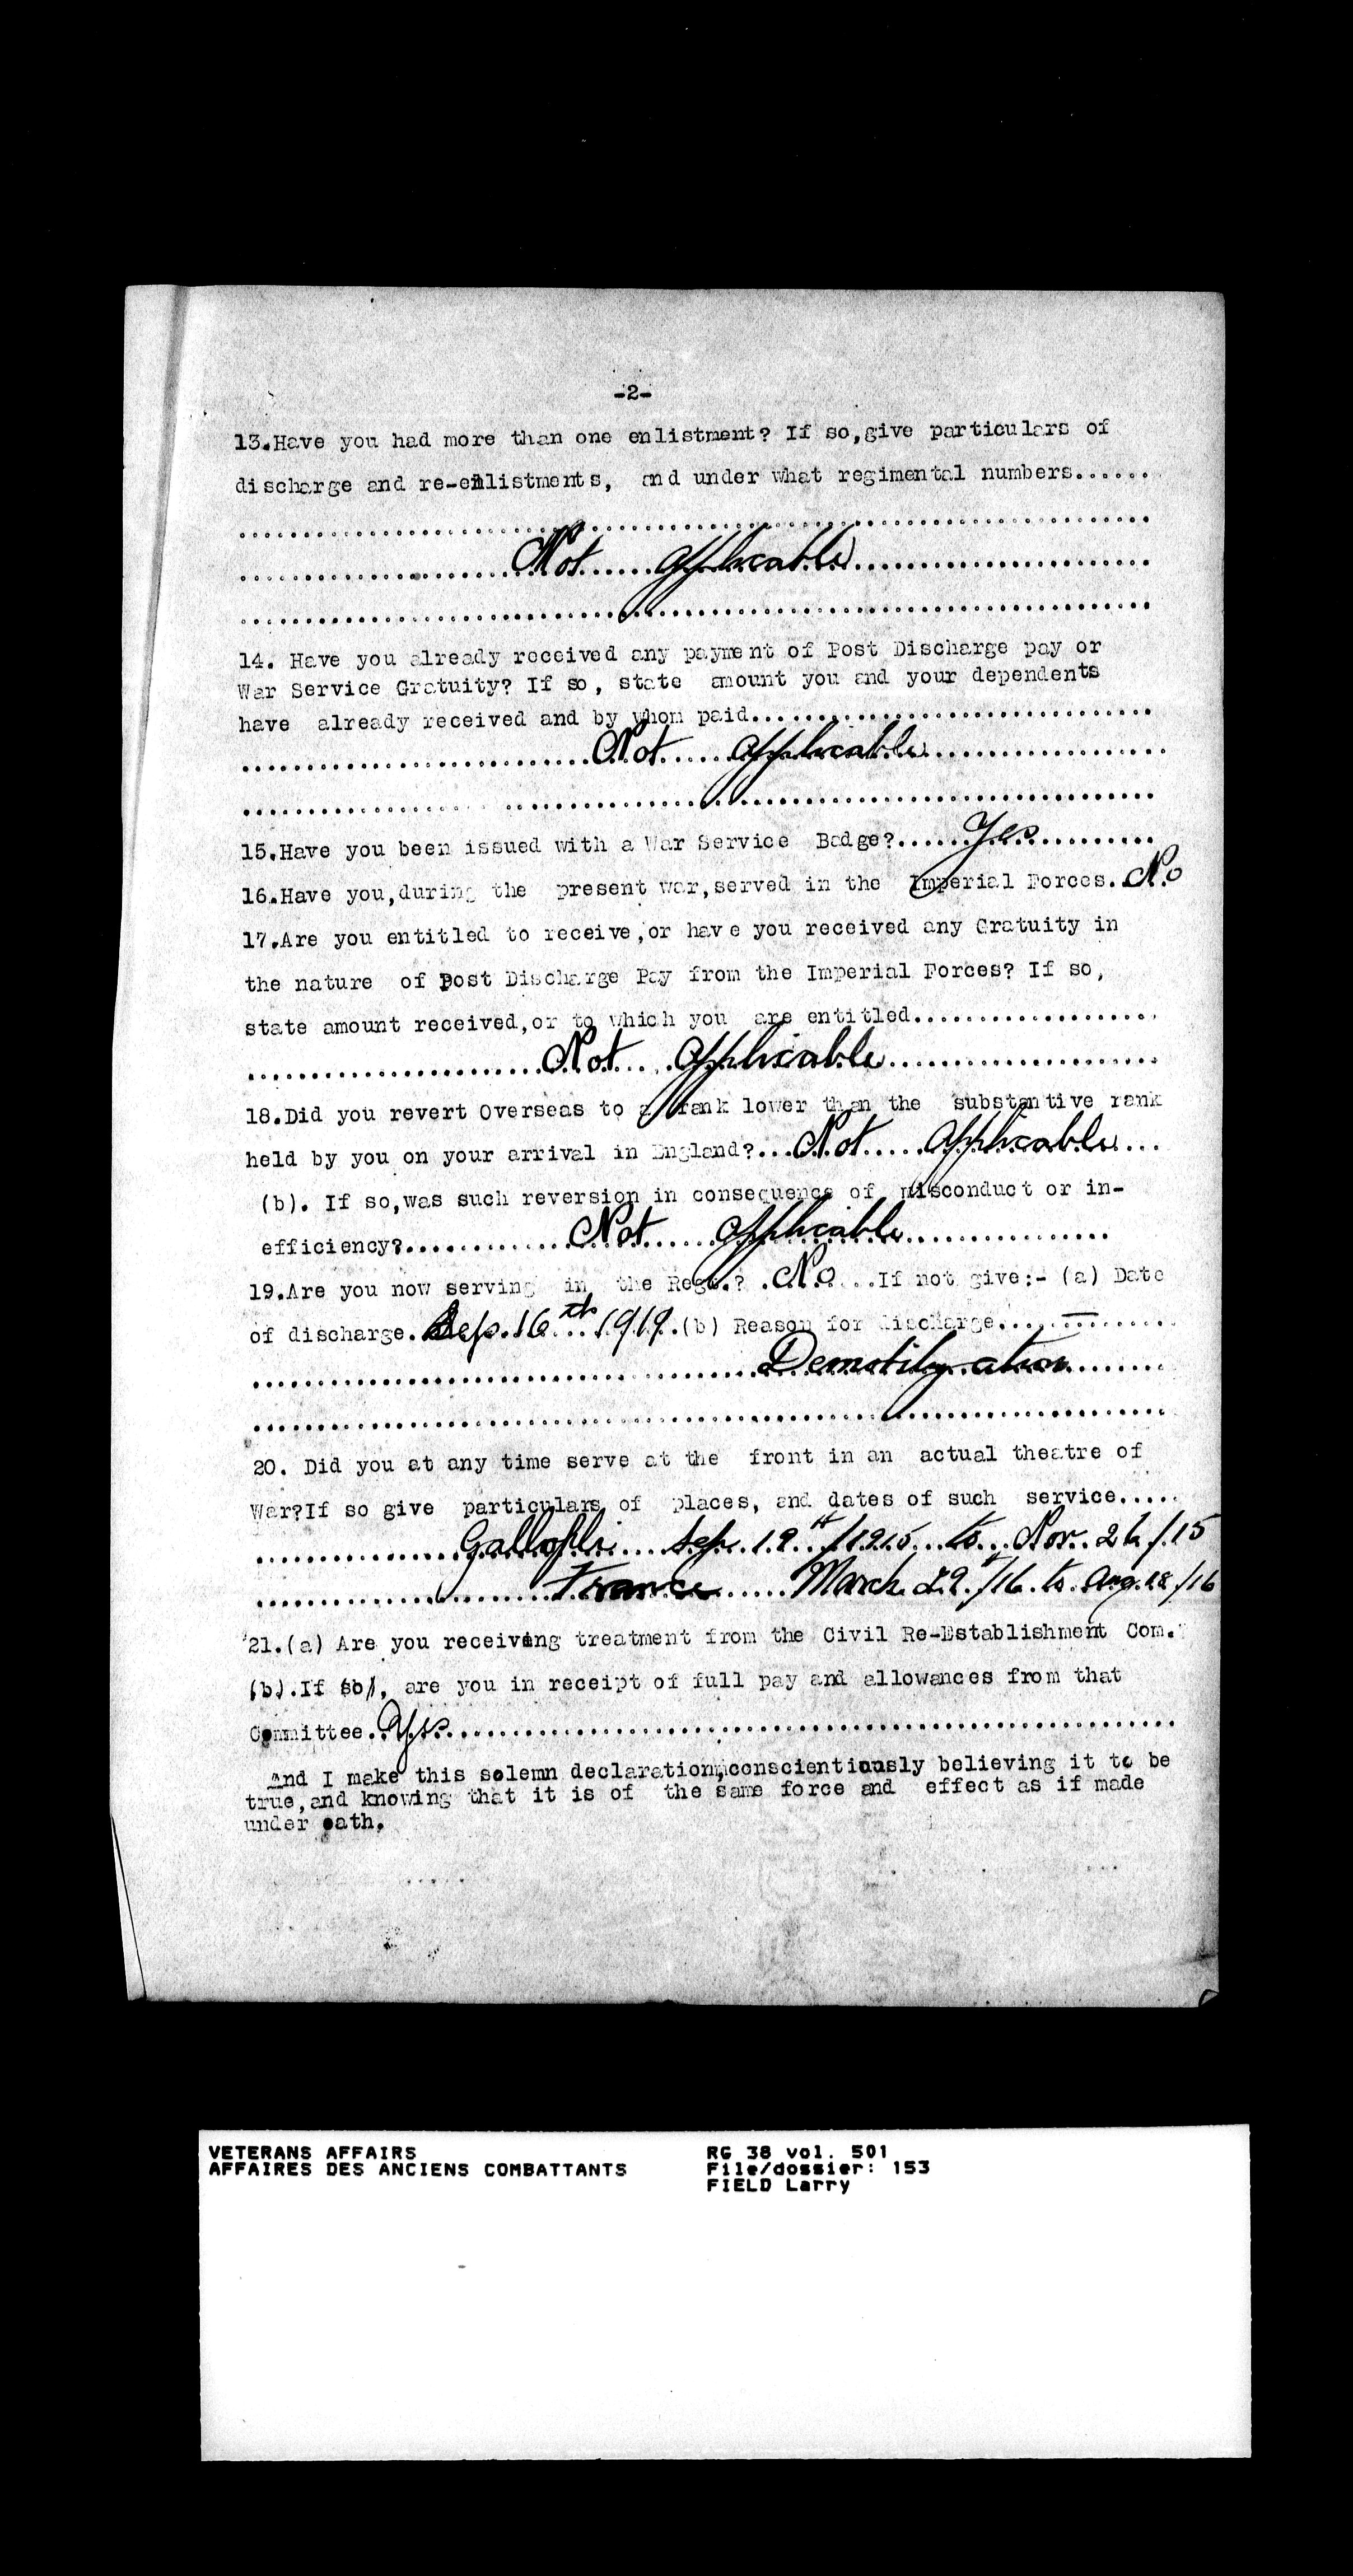 -2-
13.Have you had more than one enlistment? If so,give particulars of
discharge and re-enlistments, and under what regimental numbers.......
Not applicable
14. Have you already received any payment of Post Discharge pay or
War Service Gratuity? If so, state amount you and your dependents
have already received and by whom paid
Not applicable
15.Have you been issued with a War Service Badge? Yes
16.Have you,during the present war,served in the Imperial Forces. No
17.Are you entitled to receive,or have you received any Gratuity in
the nature of Post Discharge Pay from the Imperial Forces? If so,
state amount received,or to which you are entitled
Not applicable
18.Did you revert Overseas to a rank lower than the substantive rank
held by you on your arrival in England? Not applicable
(b). If so,was such reversion in consequence of misconduct or in-
efficiency? Not applicable
19.Are you now serving in the Regt.? No If not give:- (a) Date
of discharge. Sep. 16th 1919. (b) Reason for discharge
20. Did you at any time serve at the front in an actual theatre of
War?If so give particulars of places, and dates of such service.....
Sep. 19th/1915 to Nov. 26/15
France March 29/16 to Aug. 18/16
21.(a) Are you receiving treatment from the Civil Re-Establishment Com.?
(b).If so, are you in receipt of full pay and allowances from that
Committee. Yes
And I make this solemn declaration,conscientiously believing it to be
true,and knowing that it is of the same force and effect as if made
under oath.
VETERANS AFFAIRS
AFFAIRES DES ANCIENS COMBATTANTS
RG 38 vol. 501
File/dossier: 153
FIELD Larry